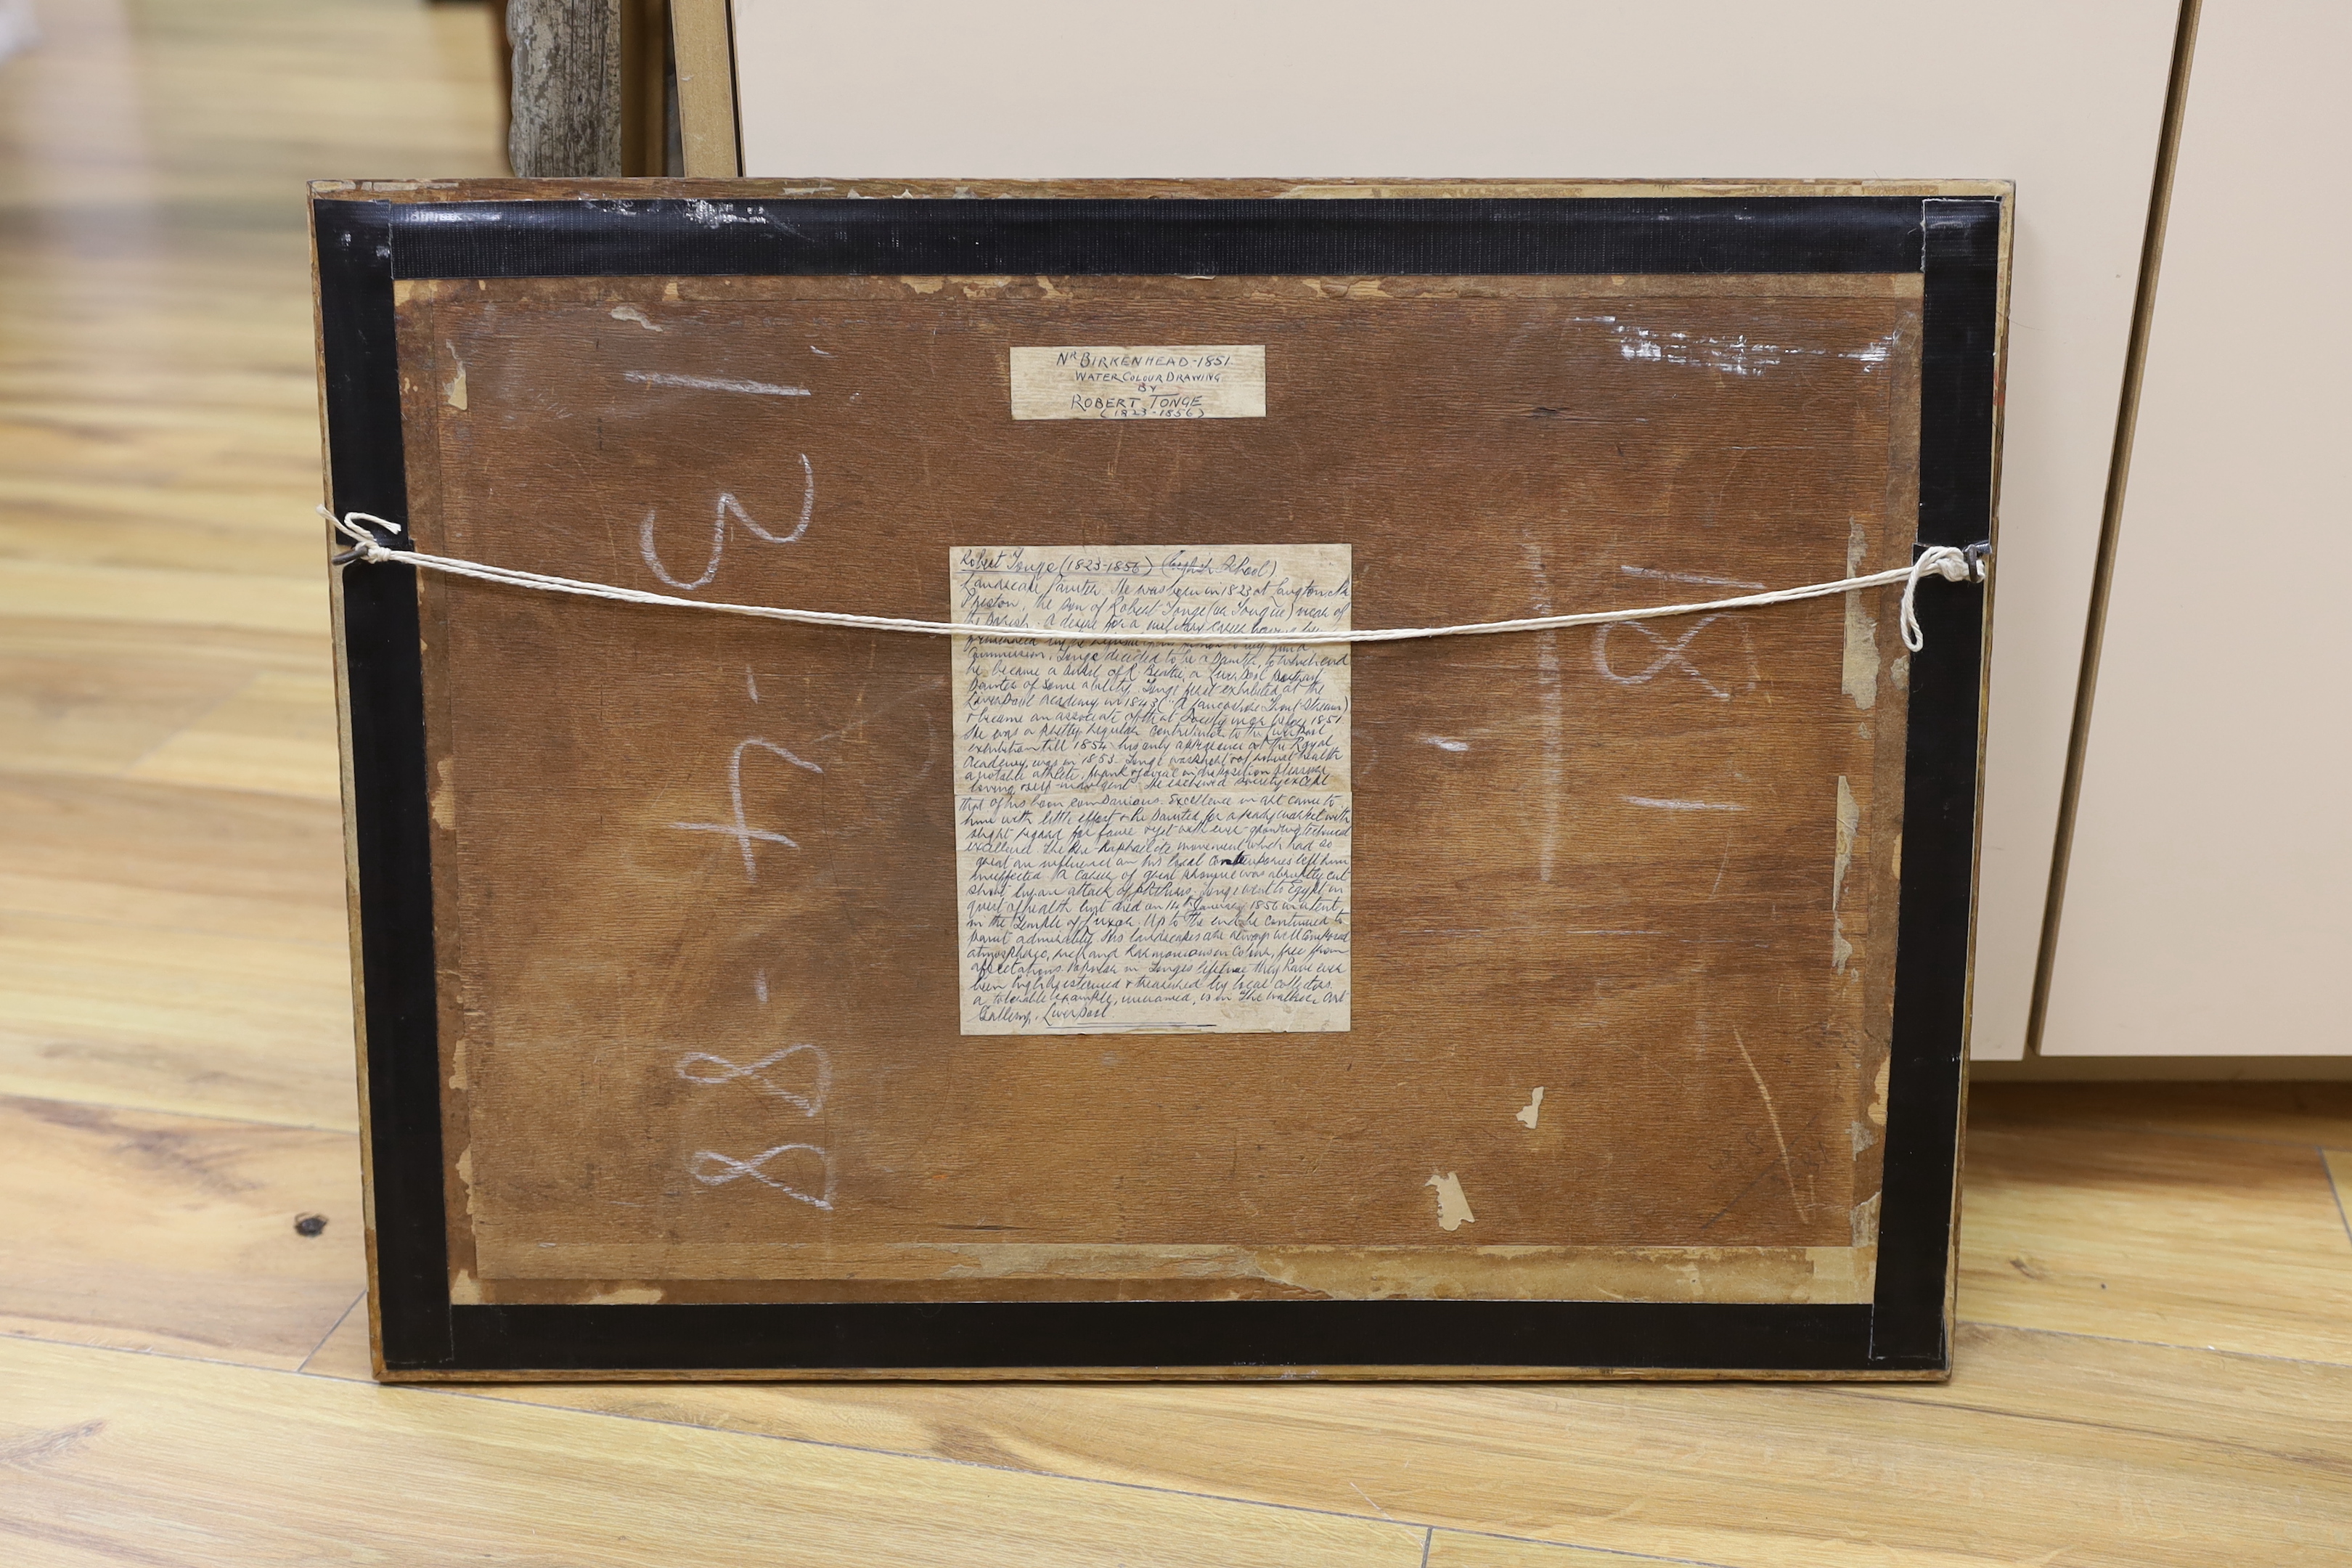 NR BIRKENHEAD-1851
WATER COLOUR DRAWING
BY
ROBERT TONGE
(1823-1856)
Robert Tonge (1823-1856) (English School)
Landscape Painter. He was born in 1823 at Longton Nr
Preston, the son of Robert Tonge (or Tongue) near of
the Parish. A desire for a military career having been
commission, Tonge decided to be a Painter, to which end
he became a pupil of R Beattie, a Liverpool Portrait
Painter of some ability. Tonge first exhibited at the
Liverpool Academy in 1843 ("A Lancashire Trout Stream)
& became an associate of that Society in or 1851
He was a pretty regular contributor to the Liverpool
exhibition till 1854, his only appearance at the Royal
Academy, was in 1853. Tonge was robust health
a notable athlete, frank & genial in disposition pleasure
loving & self-indulgent. He eschewed Society except
that of his boon companions. Excellence in art came to
him with little effort & he painted for a ready market with
slight regard for fame & yet with ever-growing technical
excellence. The Pre-Raphaelite movement which had so
great an influence on his local contemporaries left him
unaffected. A career of great promise was abruptly cut
short by an attack of Phthisis. Tonge went to Egypt in
quest of health but died on 14th January 1856 in a tent,
in the Temple of Luxor. Up to the end he continued to
paint admirably. His landscapes are always well composed
atmospheric, and harmonious in colour, free from
affectations. Popular in Tonges lifetime they have ever
been highly esteemed & treasured by local collectors.
a tolerable example, unnamed, is in The Walker Art
Gallery, Liverpool
88-4-31
181
-